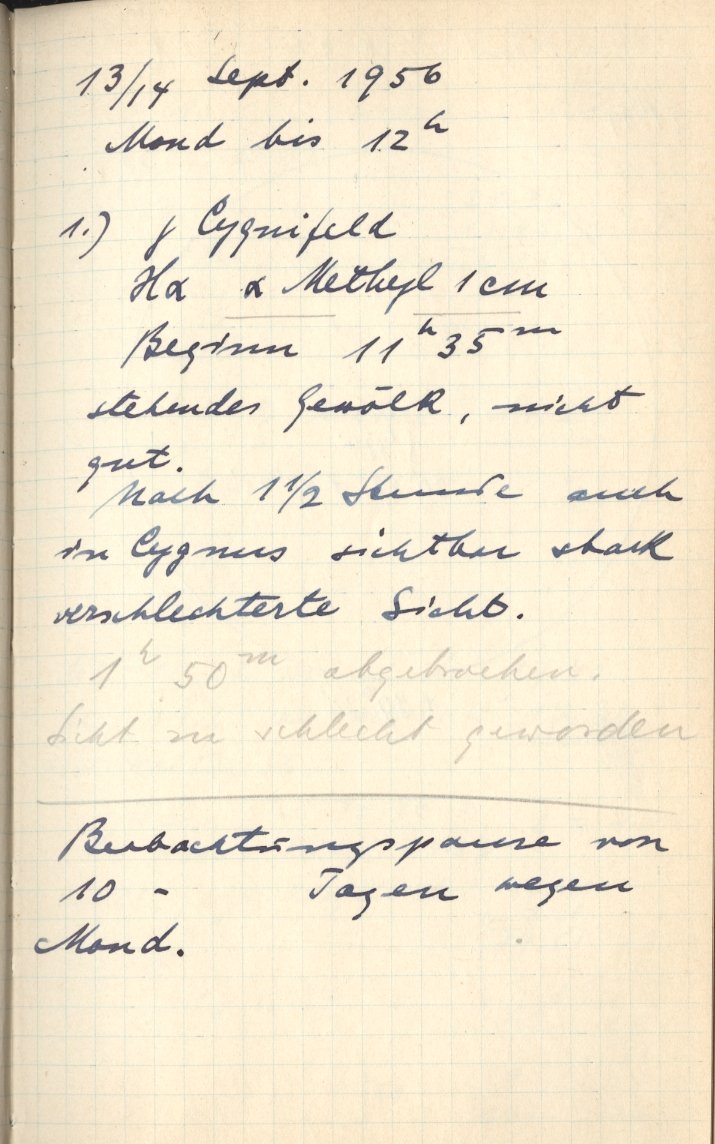 13/14 Sept. 1956
Mond bis 12h
1.) γ Cygnifeld
Hα α Methyl 1 cm
Beginn 11h 35m
stehendes Gewölk, nicht
gut.
Nach 1 1/2 Stunde auch
in Cygnus sichtbar stark
verschlechterte Sicht.
1h 50m abgebrochen.
Sicht zu schlecht geworden
Beobachtungspause von
10 - Tagen wegen
Mond.